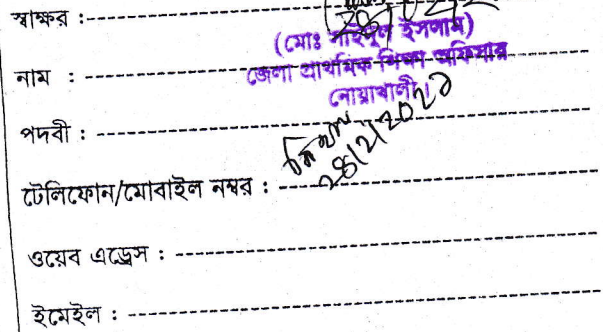 স্বাক্ষর :
(মোঃ সাইদুল ইসলাম)
নাম :
জেলা প্রাথমিক শিক্ষা অফিসার
নোয়াখালী।
পদবী :
টেলিফোন/মোবাইল নম্বর :
ওয়েব এড্রেস :
ইমেইল :